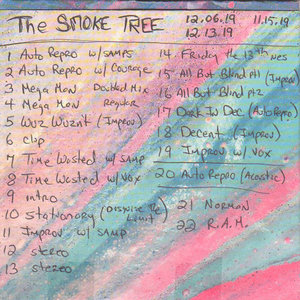 The SMOKE TREE
12.06.19 11.15.19
12.13.19
1 Auto Repro w/ SAMPS
2 Auto Repro w/ Courage
3 Mega Man Doubled Mix
4 Mega Man Regular
5 Wuz Wuznt (Improv)
6 Clip
7 Time Wasted w/ SAMP
8 Time Wasted w/ VOX
9 intro
10 Stationary (Despize The Limit)
11 Improv w/ SAMP
12 stereo
13 stereo
14. Friday the 13th NES
15 All But Blind Pt1 (Improv)
16 All But Blind Pt2
17 Dark In Dec (Auto Repro)
18 Decent (Improv)
19 Improv w/ VOX
20 Auto Repro (Acoustic)
21 NORMAN
22 R.A.M.